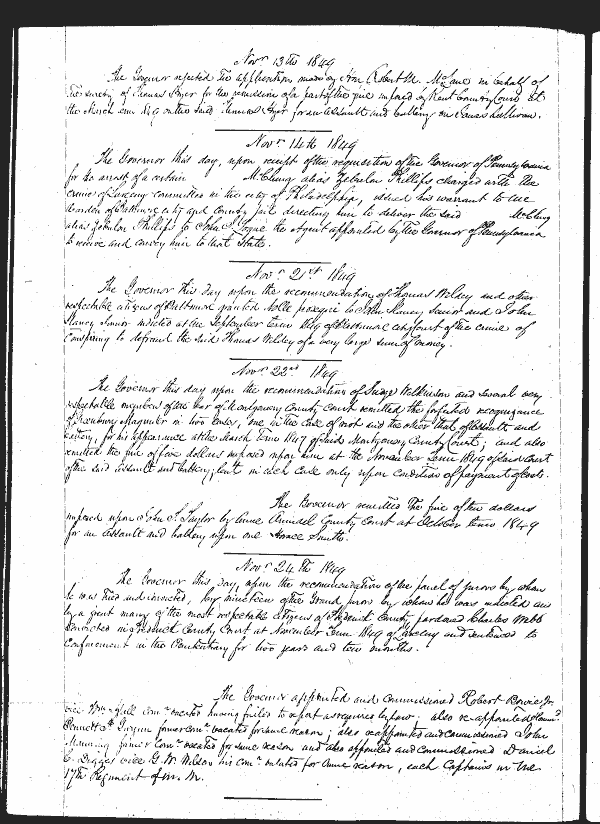 Novr 13th 1849
The Governor rejected the application made by Hon. Robert M. McLane in behalf of
the surety of Thomas for the remission of a part of the fine imposed by Kent County Court at
the March term 1849 on the said Thomas for an assault and battery on
Novr 14th 1849
The Governor this day, upon receipt of the requisition of the Governor of Pennsylvania
for the arrest of a certain McClung alias Zebulon Phillips charged with the
crime of Larceny committed in the city of Philadelphia, issued his warrant to the
Warden of Baltimore city and County jail directing him to deliver the said McClung
alias Zebulon Phillips to John the Agent appointed by the Governor of Pennsylvania
to receive and convey him to that State.
Novr 21st 1849
The Governor this day upon the recommendation of Thomas Wildey and other
respectable citizens of Baltimore granted Nolle prosequi to John Clancy Senior and John
Clancy Junior indicted at the September term 1849 of Baltimore city Court of the crime of
Conspiring to defraud the said Thomas Wildey of a very large sum of money.
Novr 22nd 1849
The Governor this day upon the recommendation of Judge Wilkinson and several very
respectable members of the bar of Montgomery County Court remitted the forfeited recognizance
of Magruder in two cases, one in the case of and the other that of Assault and
battery, for his appearance at the March Term 1847 of said Montgomery County Court; and also
remitted the fine of five dollars imposed upon him at the November Term 1849 of said Court
of the said assault and battery; but in each case only upon condition of payment of costs.
The Governor remitted the fine of ten dollars
imposed upon John S. Taylor by Anne Arundel County Court at October term 1849
for an Assault and battery upon one Horace Smith.
Novr 24th 1849
The Governor this day, upon the recommendation of the panel of jurors by whom
he was tried and convicted, by nineteen of the Grand jurors by whom he was indicted and
by a great many of the most respectable citizens of Frederick County pardoned Charles Webb
convicted in Frederick County Court at November Term 1849 of larceny and sentenced to
Confinement in the Penitentiary for two years and two months.
The Governor appointed and commissioned Robert Bowie Jr.
vice Wm Hill comn vacated having failed to report as required by law; also re-appointed
former comn vacated for same reason; also reappointed and commissioned John
Manning former comn vacated for same reason and also appointed and commissioned Daniel
C. Digges vice G. W. Wilson his comn vacated for same reason, each Captains in the
17th Regiment of M. M.